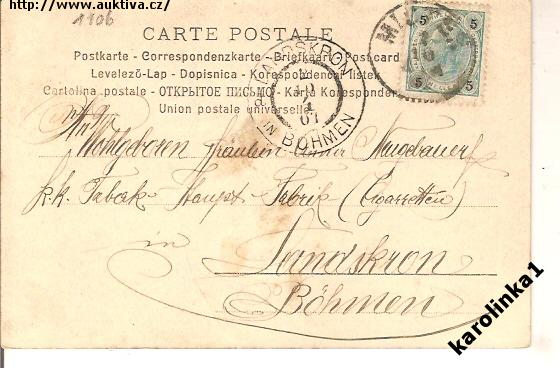 http://www.auktiva.cz/
1106
CARTE POSTALE
Postkarte - Correspondenzkarte - Briefkaart - Postcard
Levelező-Lap - Dopisnica - Korespondenční lístek
Cartolina postale - ОТКРЫТОЕ ПИСЬМО - Karta Korespondencyjna
Union postale universelle
LANDSKRON
IN BÖHMEN
5 5
5 5
An
Wohlgeboren Fräulein Anna Neugebauer
k.k. Tabak Haupt Fabrik (Cigaretten)
in
Landskron
Böhmen
karolinka1